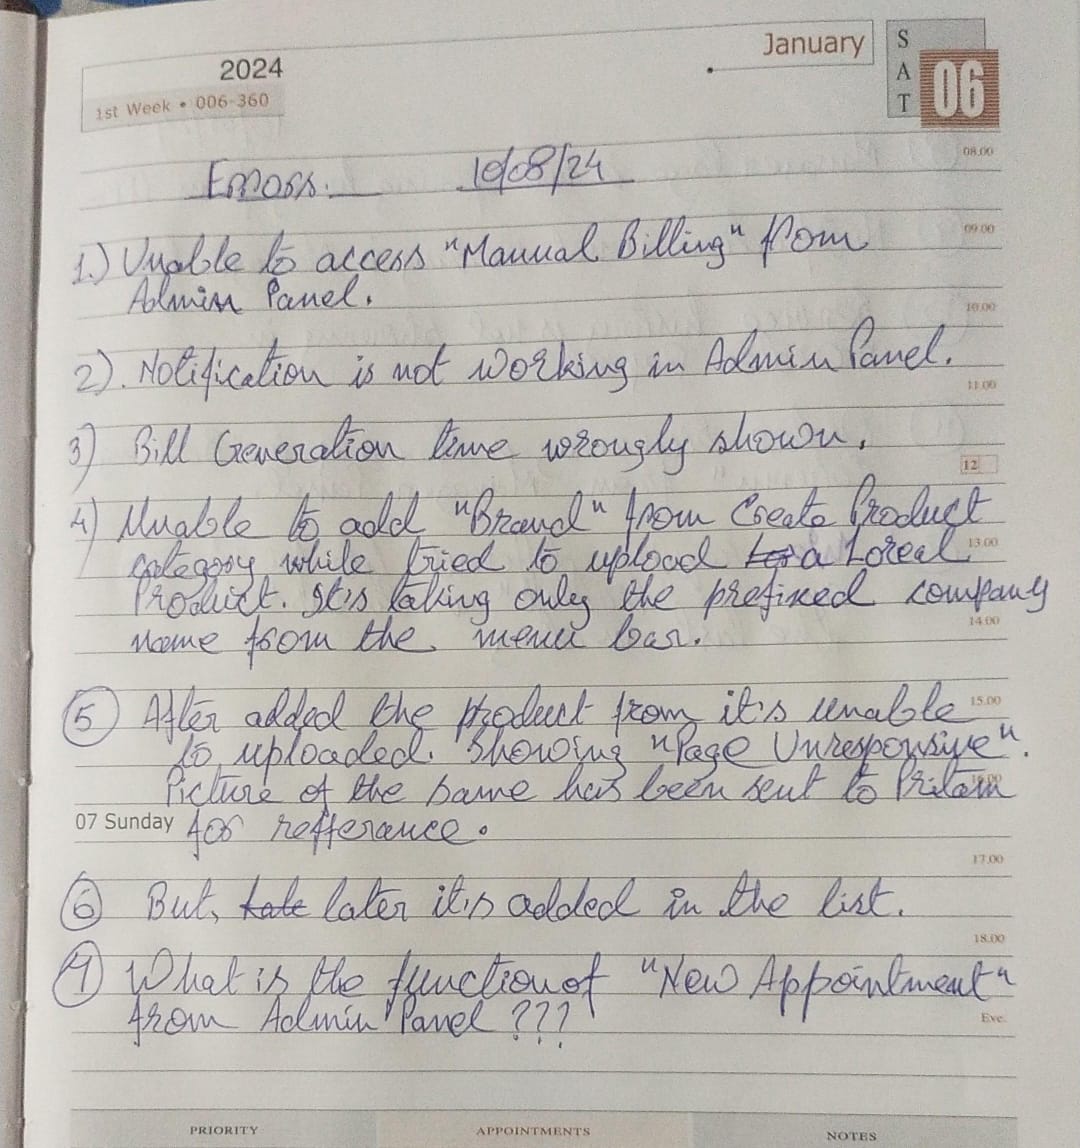 January
SAT
06
2024
1st Week • 006-360
08.00
Errors. 10/08/24
09.00
1.) Unable to access "Manual Billing" from
Admin Panel.
10.00
2). Notification is not working in Admin Panel.
11.00
3) Bill Generation time wrongly shown.
12
4) Unable to add "Brand" from Create Product
category while tried to upload a Loreal
13.00
Product. It's taking only the prefixed company
name from the menu bar.
14.00
5) After added the product from it's unable
15.00
to uploaded. Showing "Page Unresponsive".
Picture of the same has been sent to Pritam
16.00
07 Sunday
for refferance.
17.00
6) But, late later it's added in the list.
18.00
7) What is the function of "New Appointment"
from Admin Panel ???
Eve.
PRIORITY
APPOINTMENTS
NOTES